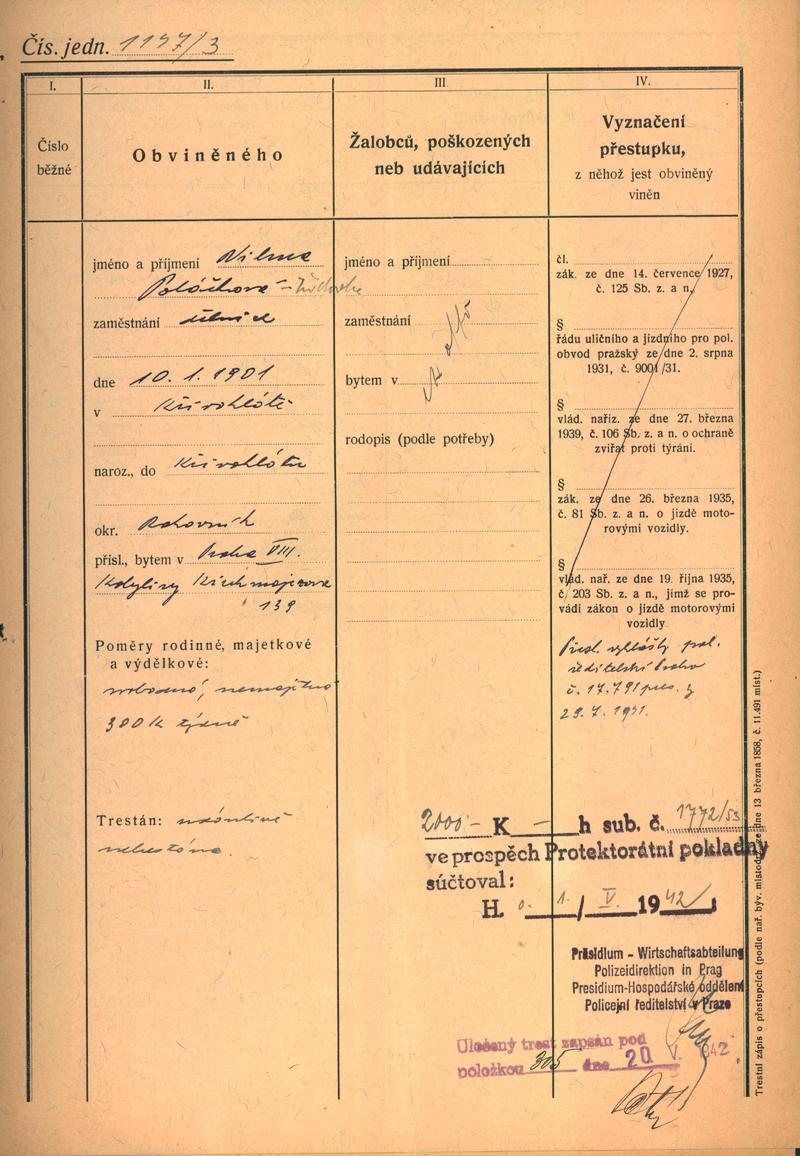 Čís. jedn. 1147/3
I.
II.
III.
IV.
Číslo
běžné
Obviněného
Žalobců, poškozených
neb udávajících
Vyznačení
přestupku,
z něhož jest obviněný
viněn
jméno a příjmení Vilma
Poláčková
zaměstnání dělnice
dne 10. 1. 1901
v
naroz., do
okr. Rakovník
přísl., bytem v Praha VIII.
139
Poměry rodinné, majetkové
a výdělkové:
svobodná, nemajetná
300 K týdně
Trestán:
netrestána.
jméno a příjmení
zaměstnání
bytem v
rodopis (podle potřeby)
čl.
zák. ze dne 14. července 1927,
č. 125 Sb. z. a n.
§
řádu uličního a jízdního pro pol.
obvod pražský ze dne 2. srpna
1931, č. 9001/31.
§
vlád. naříz. ze dne 27. března
1939, č. 106 Sb. z. a n. o ochraně
zvířat proti týrání.
§
zák. ze dne 26. března 1935,
č. 81 Sb. z. a n. o jízdě moto-
rovými vozidly.
§
vlád. nař. ze dne 19. října 1935,
č. 203 Sb. z. a n., jímž se pro-
vádí zákon o jízdě motorovými
vozidly
Přest. vyhlášky pol.
ředitelství Praha
č. 17.791 pres. z
29. 7. 1941.
2000 - K - h sub. č. 1772/53
ve prospěch Protektorátní pokladny
súčtoval:
H. 1. / V. 1942
Präsidium - Wirtschaftsabteilung
Polizeidirektion in Prag
Presidium-Hospodářské oddělení
Policejní ředitelství v Praze
Uložený trest zapsán pod
položkou 305 dne 20 V. 942
Trestní zápis o přestupcích (podle nař. býv. místodrž. ze dne 13 března 1858, č. 11.491 míst.)